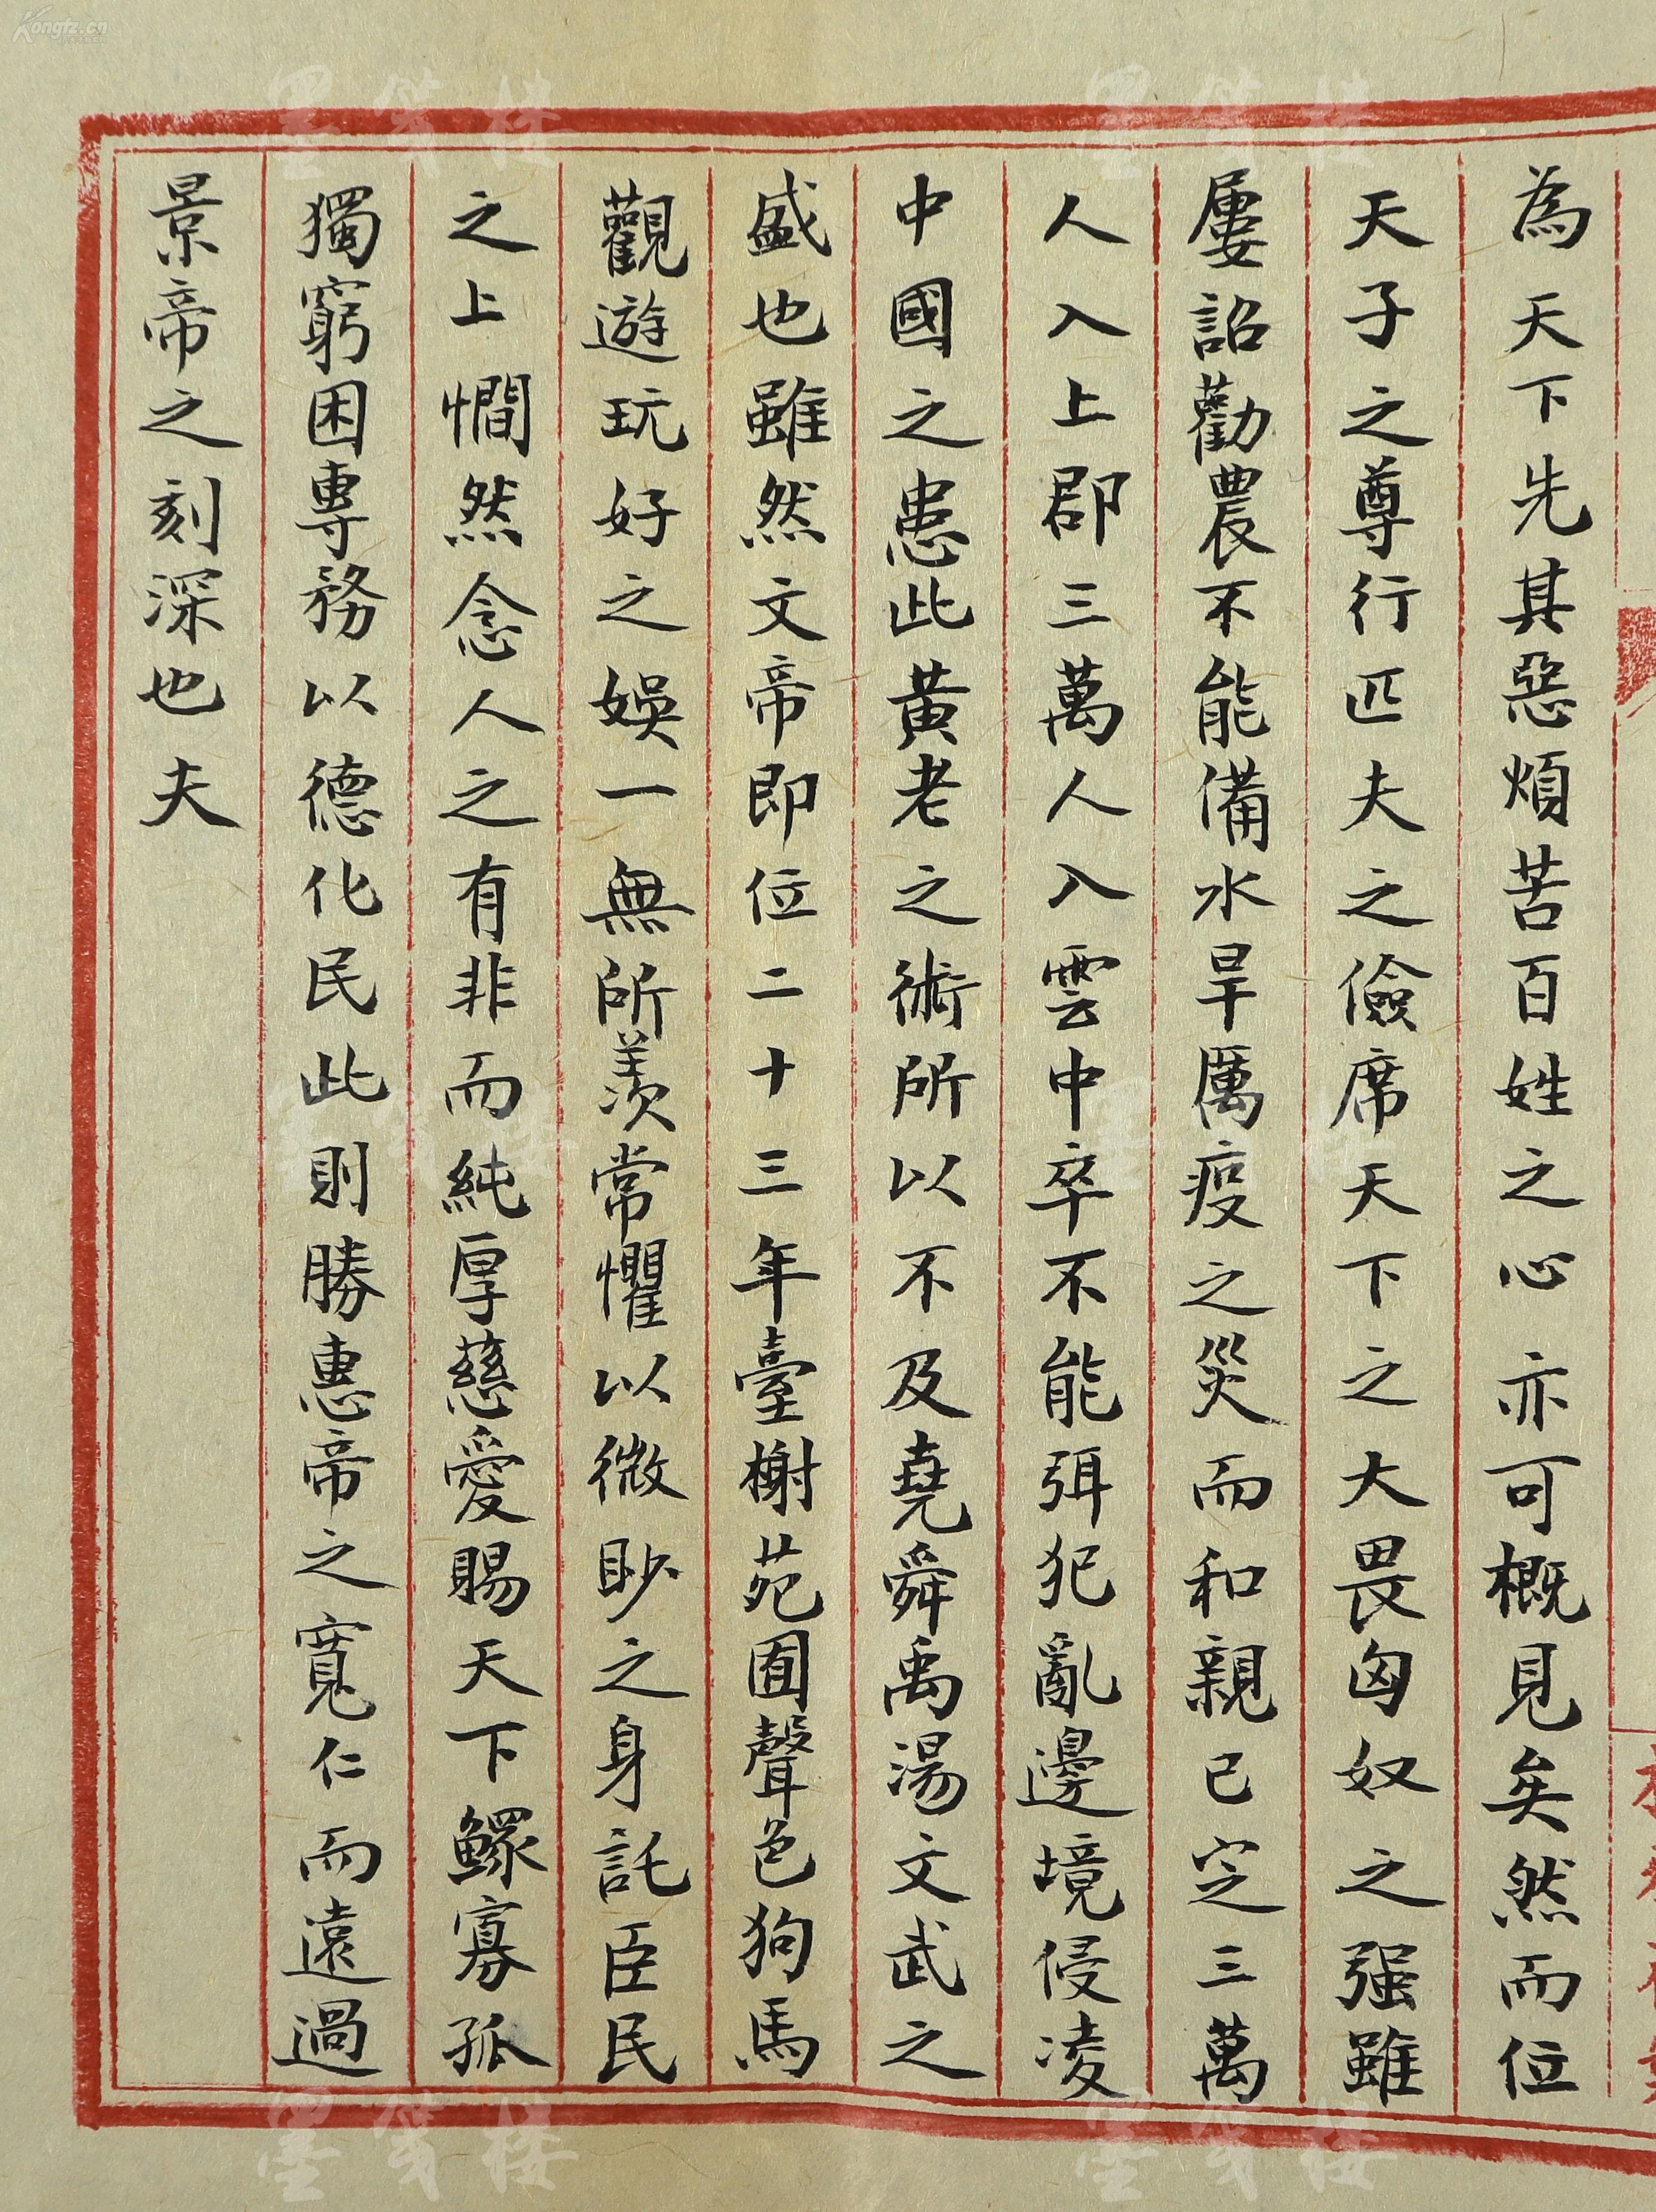 為天下先其惡煩苦百姓之心亦可概見矣然而位
天子之尊行匹夫之儉席天下之大畏匈奴之强雖
屢詔勸農不能備水旱厲疫之災而和親已定三萬
人入上郡三萬人入雲中卒不能弭犯亂邊境侵凌
中國之患此黃老之術所以不及堯舜禹湯文武之
盛也雖然文帝即位二十三年臺榭苑囿聲色狗馬
觀遊玩好之娛一無所羡常懼以微眇之身託臣民
之上憪然念人之有非而純厚慈愛賜天下鰥寡孤
獨窮困專務以德化民此則勝惠帝之寬仁而遠過
景帝之刻深也夫
Kongfz.cn
墨笺楼
墨笺楼
墨笺楼
墨笺楼
墨笺楼
墨笺楼